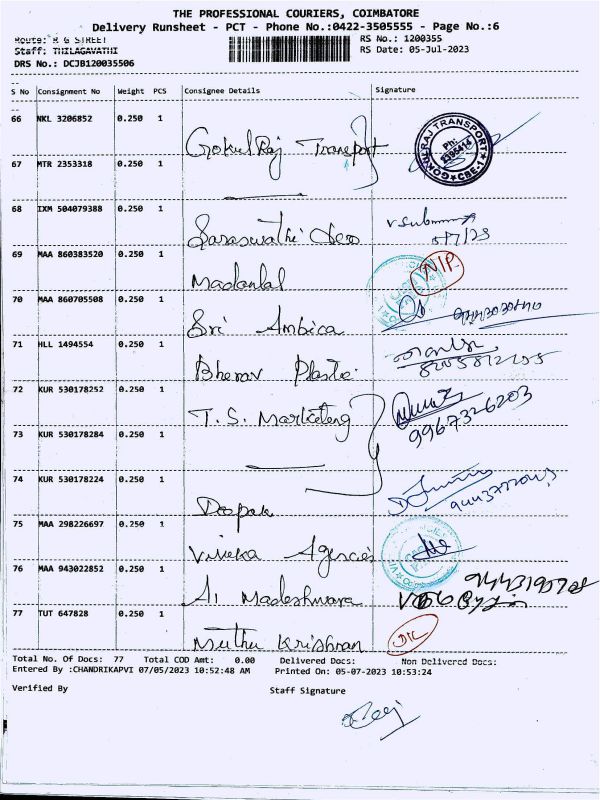 THE PROFESSIONAL COURIERS, COIMBATORE
Delivery Runsheet - PCT - Phone No.:0422-3505555 - Page No.:6
Route: R G STREET
RS No.: 1200355
Staff: THILAGAVATHI
RS Date: 05-Jul-2023
DRS No.: DCJB120035506
S No Consignment No Weight PCS Consignee Details Signature
66 NKL 3206852 0.250 1
Gokul Raj Transport
GOKULRAJ TRANSPORT
Ph:
CBE-1
67 MTR 2353318 0.250 1
68 IXM 504079388 0.250 1
Saraswathi
5/7/23
69 MAA 860383520 0.250 1
Madanlal
N/P
70 MAA 860705508 0.250 1
Sri Ambica
71 HLL 1494554 0.250 1
Bherav Plastic
72 KUR 530178252 0.250 1
T.S. Marketing
9967326203
73 KUR 530178284 0.250 1
74 KUR 530178224 0.250 1
Deepak
75 MAA 298226697 0.250 1
Viveka Agencies
76 MAA 943022852 0.250 1
Madeshwara
77 TUT 647828 0.250 1
Muthu Krishnan
D/L
Total No. Of Docs: 77 Total COD Amt: 0.00 Delivered Docs: Non Delivered Docs:
Entered By :CHANDRIKAPVI 07/05/2023 10:52:48 AM Printed On: 05-07-2023 10:53:24
Verified By Staff Signature